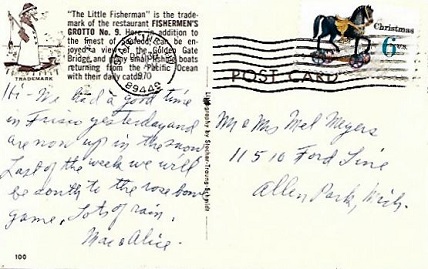 "The Little Fisherman" is the trade-
mark of the restaurant FISHERMEN'S
GROTTO No. 9. Here, in addition to
the finest of seafood, can be en-
joyed a view of the Golden Gate
Bridge, and many small fishing boats
returning from the Pacific Ocean
with their daily catch.
TRADEMARK
Hi - We had a good time
in Frisco yesterday and
are now up in the snow
Last of the week we will
be south to the rose bowl
game. Lots of rain.
Mac & Alice.
100
1970
89449
Christmas
6 U.S.
POST CARD
Mr & Mrs Mel Meyers
11510 Ford Line
Allen Park, Mich.